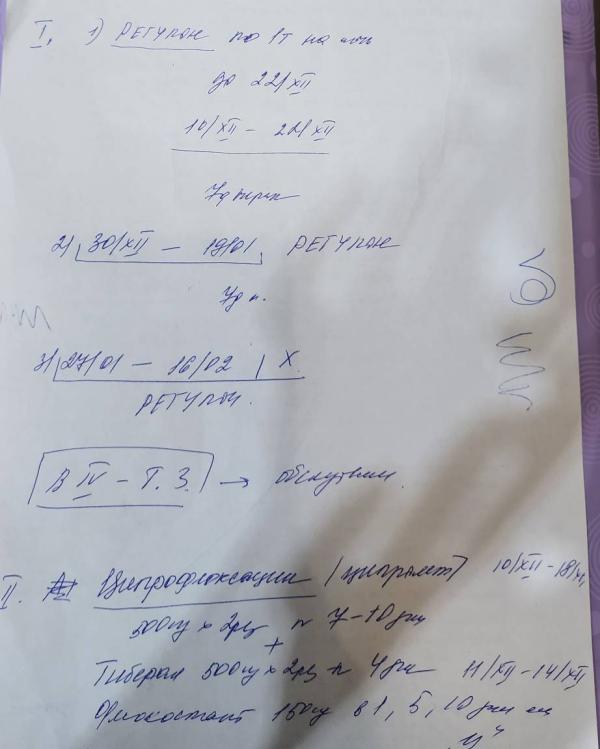 I. 1) РЕГУЛОН по 1т на ночь
до 22/XII
10/XII - 22/XII
7д перерыв
2) 30/XII - 19/01 РЕГУЛОН
7д п.
3) 27/01 - 16/02 X
РЕГУЛОН.
В IV - Т. З. → обсудим.
II. Ципрофлоксацин (ципролет) 10/XII - 18/XII
500мг x 2р/д N 7-10 дн
+
Тиберал 500мг x 2р/д N 4 дн 11/XII - 14/XII
Флюкостат 150мг в 1, 5, 10 день